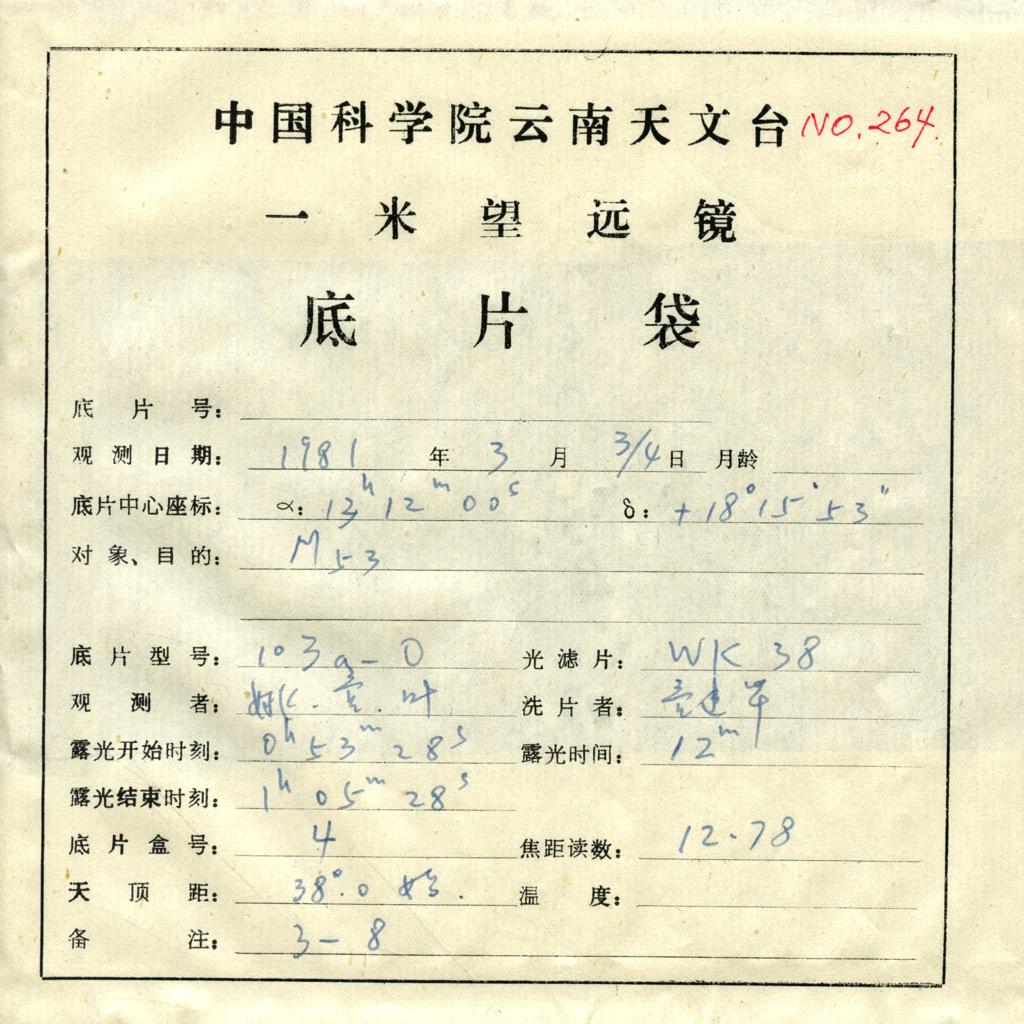 中国科学院云南天文台 NO.264.
一米望远镜
底片袋
底片号：
观测日期： 1981 年 3 月 3/4 日 月龄
底片中心座标： α： 13h 12m 00s δ： +18°15′53″
对象、目的： M53
底片型号： 103a-O 光滤片： WK 38
观测者： 姚.童.叶 洗片者： 童建华
露光开始时刻： 0h 53m 28s 露光时间： 12m
露光结束时刻： 1h 05m 28s
底片盒号： 4 焦距读数： 12.78
天顶距： 38°.0 温度：
备注： 3-8